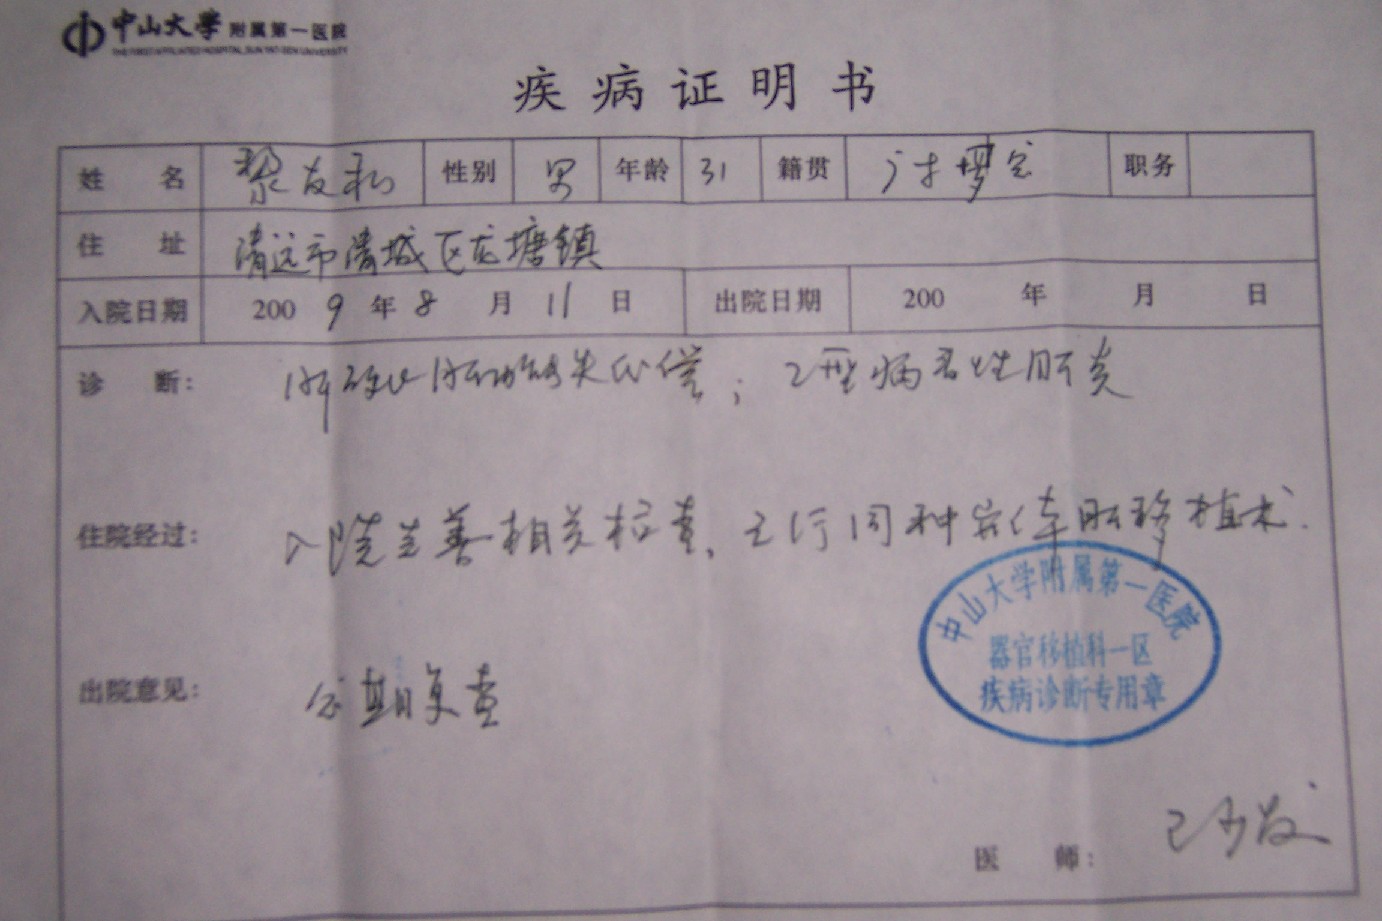 中山大学 附属第一医院
THE FIRST AFFILIATED HOSPITAL, SUN YAT-SEN UNIVERSITY
疾病证明书
姓 名 黎友和 性别 男 年龄 31 籍贯 职务
住 址 清远市清城区龙塘镇
入院日期 2009年8月11日 出院日期 200 年 月 日
诊 断: 肝硬化肝功能失代偿; 乙型病毒性肝炎
住院经过: 入院完善相关检查, 已行同种异体肝移植术.
中山大学附属第一医院
器官移植科一区
疾病诊断专用章
出院意见: 定期复查
医 师: